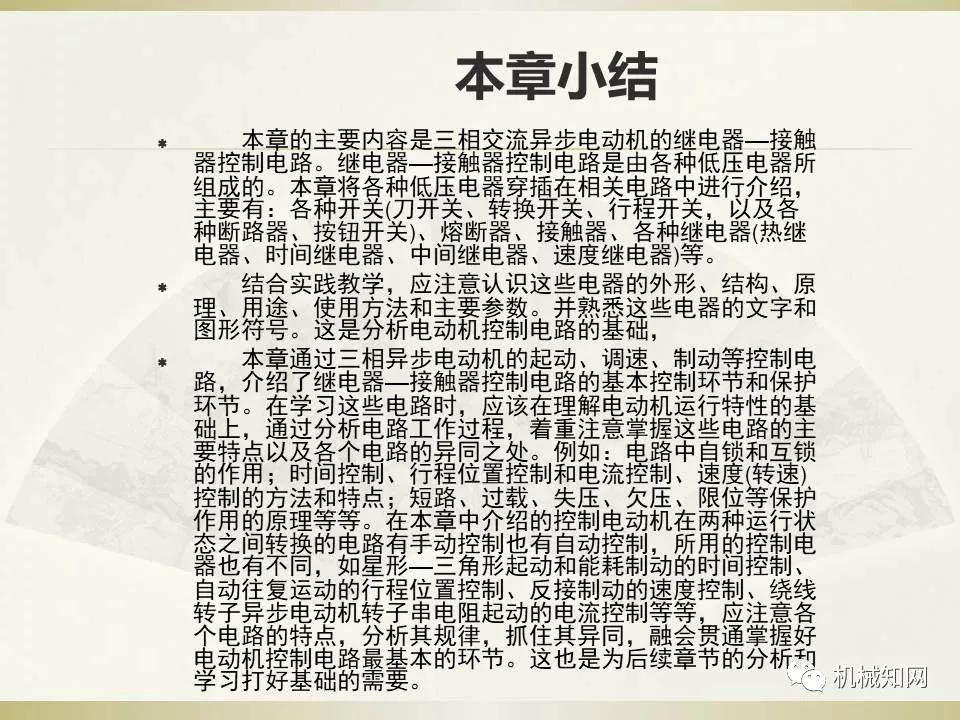 本章小结
* 本章的主要内容是三相交流异步电动机的继电器—接触
器控制电路。继电器—接触器控制电路是由各种低压电器所
组成的。本章将各种低压电器穿插在相关电路中进行介绍，
主要有：各种开关(刀开关、转换开关、行程开关，以及各
种断路器、按钮开关)、熔断器、接触器、各种继电器(热继
电器、时间继电器、中间继电器、速度继电器)等。
* 结合实践教学，应注意认识这些电器的外形、结构、原
理、用途、使用方法和主要参数。并熟悉这些电器的文字和
图形符号。这是分析电动机控制电路的基础，
* 本章通过三相异步电动机的起动、调速、制动等控制电
路，介绍了继电器—接触器控制电路的基本控制环节和保护
环节。在学习这些电路时，应该在理解电动机运行特性的基
础上，通过分析电路工作过程，着重注意掌握这些电路的主
要特点以及各个电路的异同之处。例如：电路中自锁和互锁
的作用；时间控制、行程位置控制和电流控制、速度(转速)
控制的方法和特点；短路、过载、失压、欠压、限位等保护
作用的原理等等。在本章中介绍的控制电动机在两种运行状
态之间转换的电路有手动控制也有自动控制，所用的控制电
器也有不同，如星形—三角形起动和能耗制动的时间控制、
自动往复运动的行程位置控制、反接制动的速度控制、绕线
转子异步电动机转子串电阻起动的电流控制等等，应注意各
个电路的特点，分析其规律，抓住其异同，融会贯通掌握好
电动机控制电路最基本的环节。这也是为后续章节的分析和
学习打好基础的需要。
机械知网